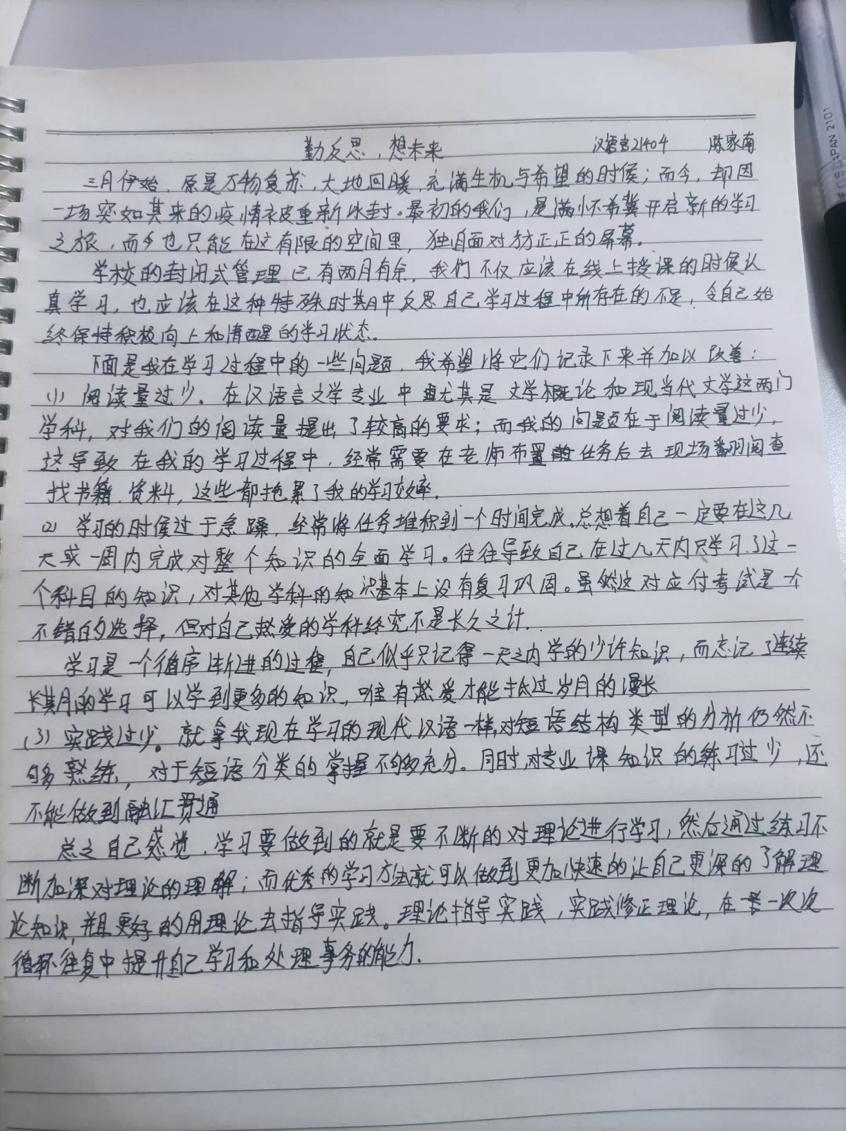 勤反思,想未来 汉语言21404 陈家南
三月伊始,原是万物复苏,大地回暖,充满生机与希望的时候;而今,却因
一场突如其来的疫情被重新冰封。最初的我们,是满怀希冀开启新的学习
之旅,而今也只能在这有限的空间里,独自面对方方正正的屏幕。
学校的封闭式管理已有两月有余,我们不仅应该在线上授课的时候认
真学习,也应该在这种特殊时期中反思自己学习过程中所存在的不足,令自己始
终保持积极向上和清醒的学习状态。
下面是我在学习过程中的一些问题,我希望将它们记录下来并加以改善:
(1) 阅读量过少。在汉语言文学专业中尤其是文学概论和现当代文学这两门
学科,对我们的阅读量提出了较高的要求;而我的问题在于阅读量过少,
这导致在我的学习过程中,经常需要在老师布置任务后去现场翻阅查
找书籍、资料,这些都拖累了我的学习效率。
(2) 学习的时候过于急躁,经常将任务堆积到一个时间完成。总想着自己一定要在这几
天或一周内完成对整个知识的全面学习。往往导致自己在这几天内只学习了这一
个科目的知识,对其他学科的知识基本上没有复习巩固。虽然这对应付考试是一个
不错的选择,但对自己热爱的学科终究不是长久之计.
学习是一个循序渐进的过程,自己似乎只记得一天之内学的少许知识,而忘记了连续
长期的学习可以学到更多的知识,唯有热爱才能抵过岁月的漫长
(3) 实践过少。就拿我现在学习的现代汉语一样,对短语结构类型的分析仍然不
够熟练,对于短语分类的掌握不够充分。同时,对专业课知识的练习过少,还
不能做到融汇贯通
总之自己感觉,学习要做到的就是要不断的对理论进行学习,然后通过练习不
断加深对理论的理解;而优秀的学习方法就可以做到更加快速的让自己更深的了解理
论知识,并且更好的用理论去指导实践。理论指导实践,实践修正理论,在一次次
循环往复中提升自己学习和处理事务的能力.
JAPAN 2101